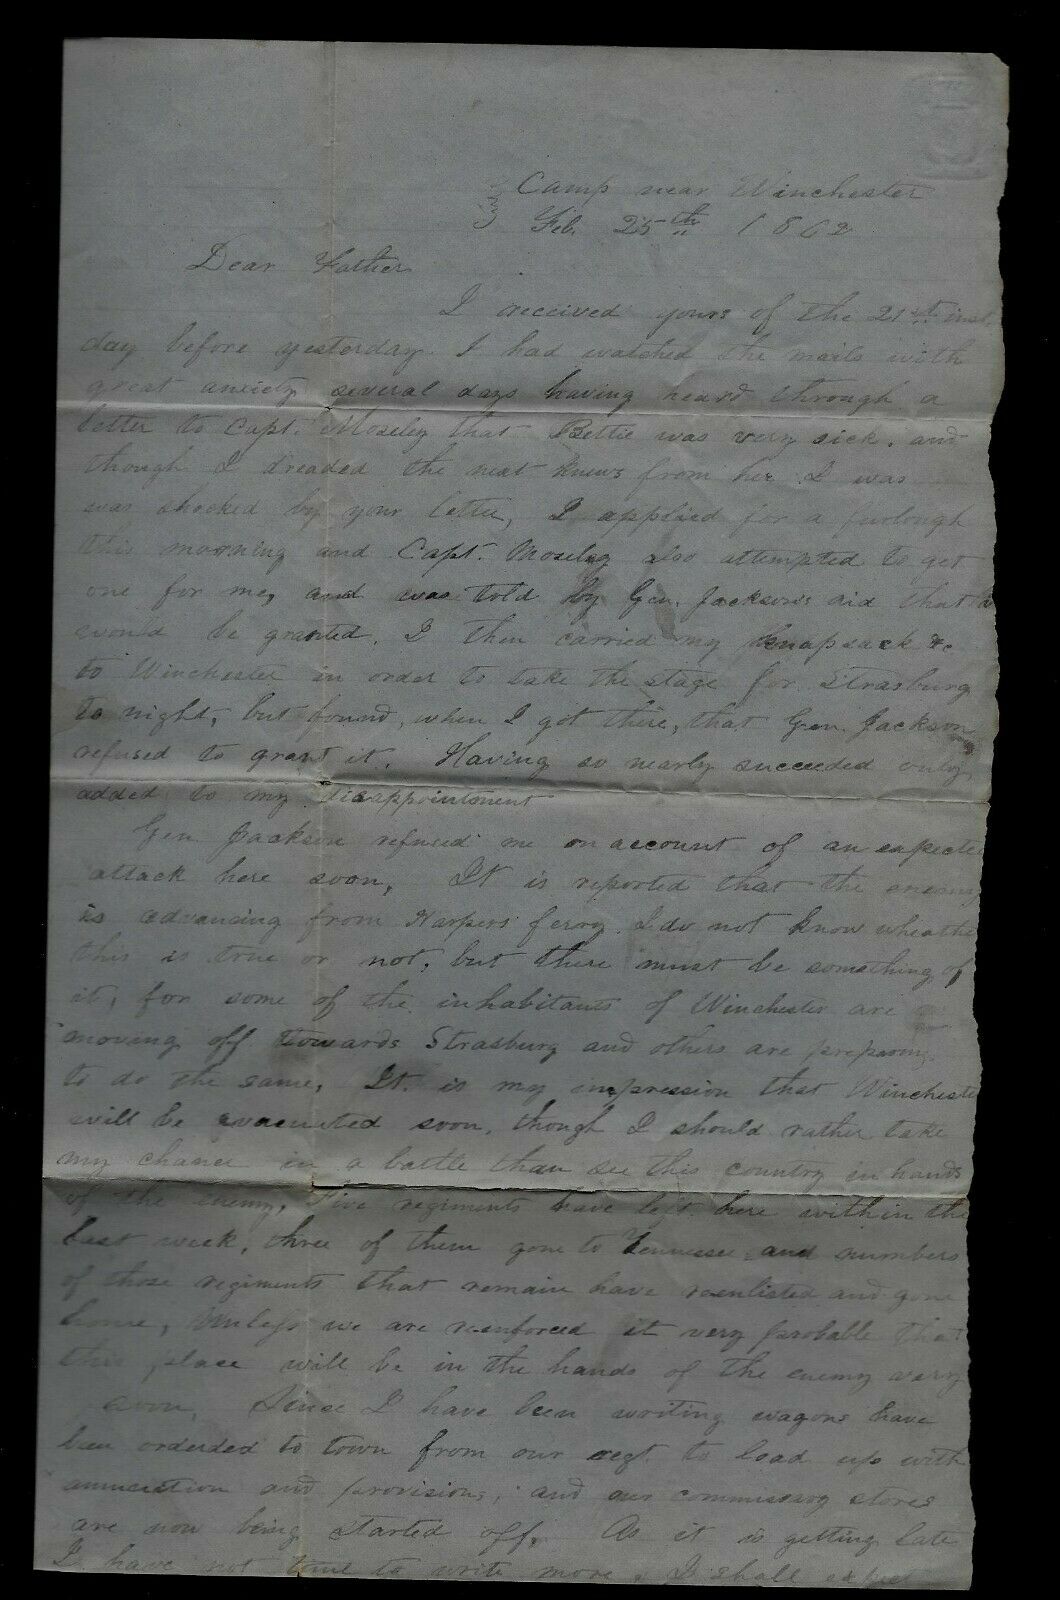 Camp near Winchester
Feb. 25th 1862
Dear Father
I received yours of the 21st inst.
day before yesterday. I had watched the mails with
great anxiety several days having heard through a
letter to Capt. Moseley that Bettie was very sick. and
though I dreaded the next knews from her I was
was shocked by your letter, I applied for a furlough
this morning and Capt. Moseley also attempted to get
one for me, and was told by Gen. Jacksons aid that it
would be granted. I then carried my knapsack &c
to Winchester in order to take the stage for Strasburg
to night, but found, when I got there, that Gen. Jackson
refused to grant it. Having so nearly succeeded only
added to my disappointment
Gen. Jackson refused me on account of an expected
attack here soon. It is reported that the enemy
is advancing from Harpers ferry. I do not know wheathe
this is true or not, but there must be something of
it, for some of the inhabitants of Winchester are
moving off towards Strasburg and others are preparing
to do the same. It is my impression that Winchester
will be evacuated soon, though I should rather take
my chance in a battle than see this country in hands
of the enemy. Five regiments have left here within the
last week, three of them gone to Tennessee and numbers
of those regiments that remain have reenlisted and gone
home, Unless we are reenforced it very probable that
this place will be in the hands of the enemy very
soon. Since I have been writing wagons have
been orderded to town from our regt. to load up with
amunition and provisions, and our commissary stores
are now being started off. As it is getting late
I have not time to write more, I shall expect